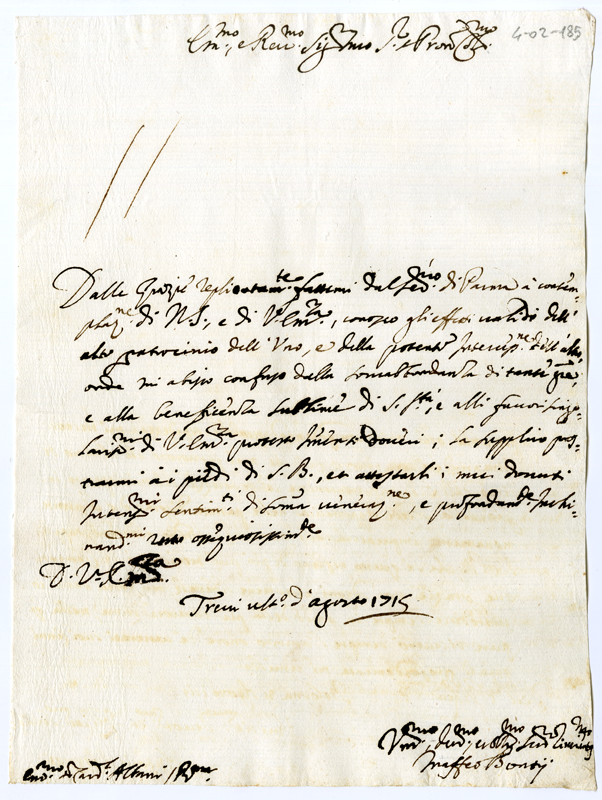 4-02-185
Em.mo, e Reu.mo Sig.re mio S.re e Pron Col.mo
Dalle grazie replicatam.te fattemi dal Ser.mo di Parma à contem=
plaz.ne di N.S., e di V.ra Em.za, conosco gli effetti ualidi dell'
alto patrocinio dell'Vno, e della potente Interces.ne dell' altra,
onde mi atesto confuso dalla soprabbondanza di tante gra.e,
e alla beneficenza sublime di S. S.tà, e alli fauori
di V. Em.za immensi Doueri; La supplico pos=
trarmi à i piedi di S. B., et attestarli i miei douuti
Intens.mi sentim.ti di somma ueneraz.ne, e profondam.te Inchi=
nand.mi resto ossequiosissim.te
D. V. E. R.ma
Treui ult.o d'agosto 1715
Vm.mo, Deu.mo, et Obb.mo Ser.re
Maffeo Bontij
Em.mo Card. Albani Roma